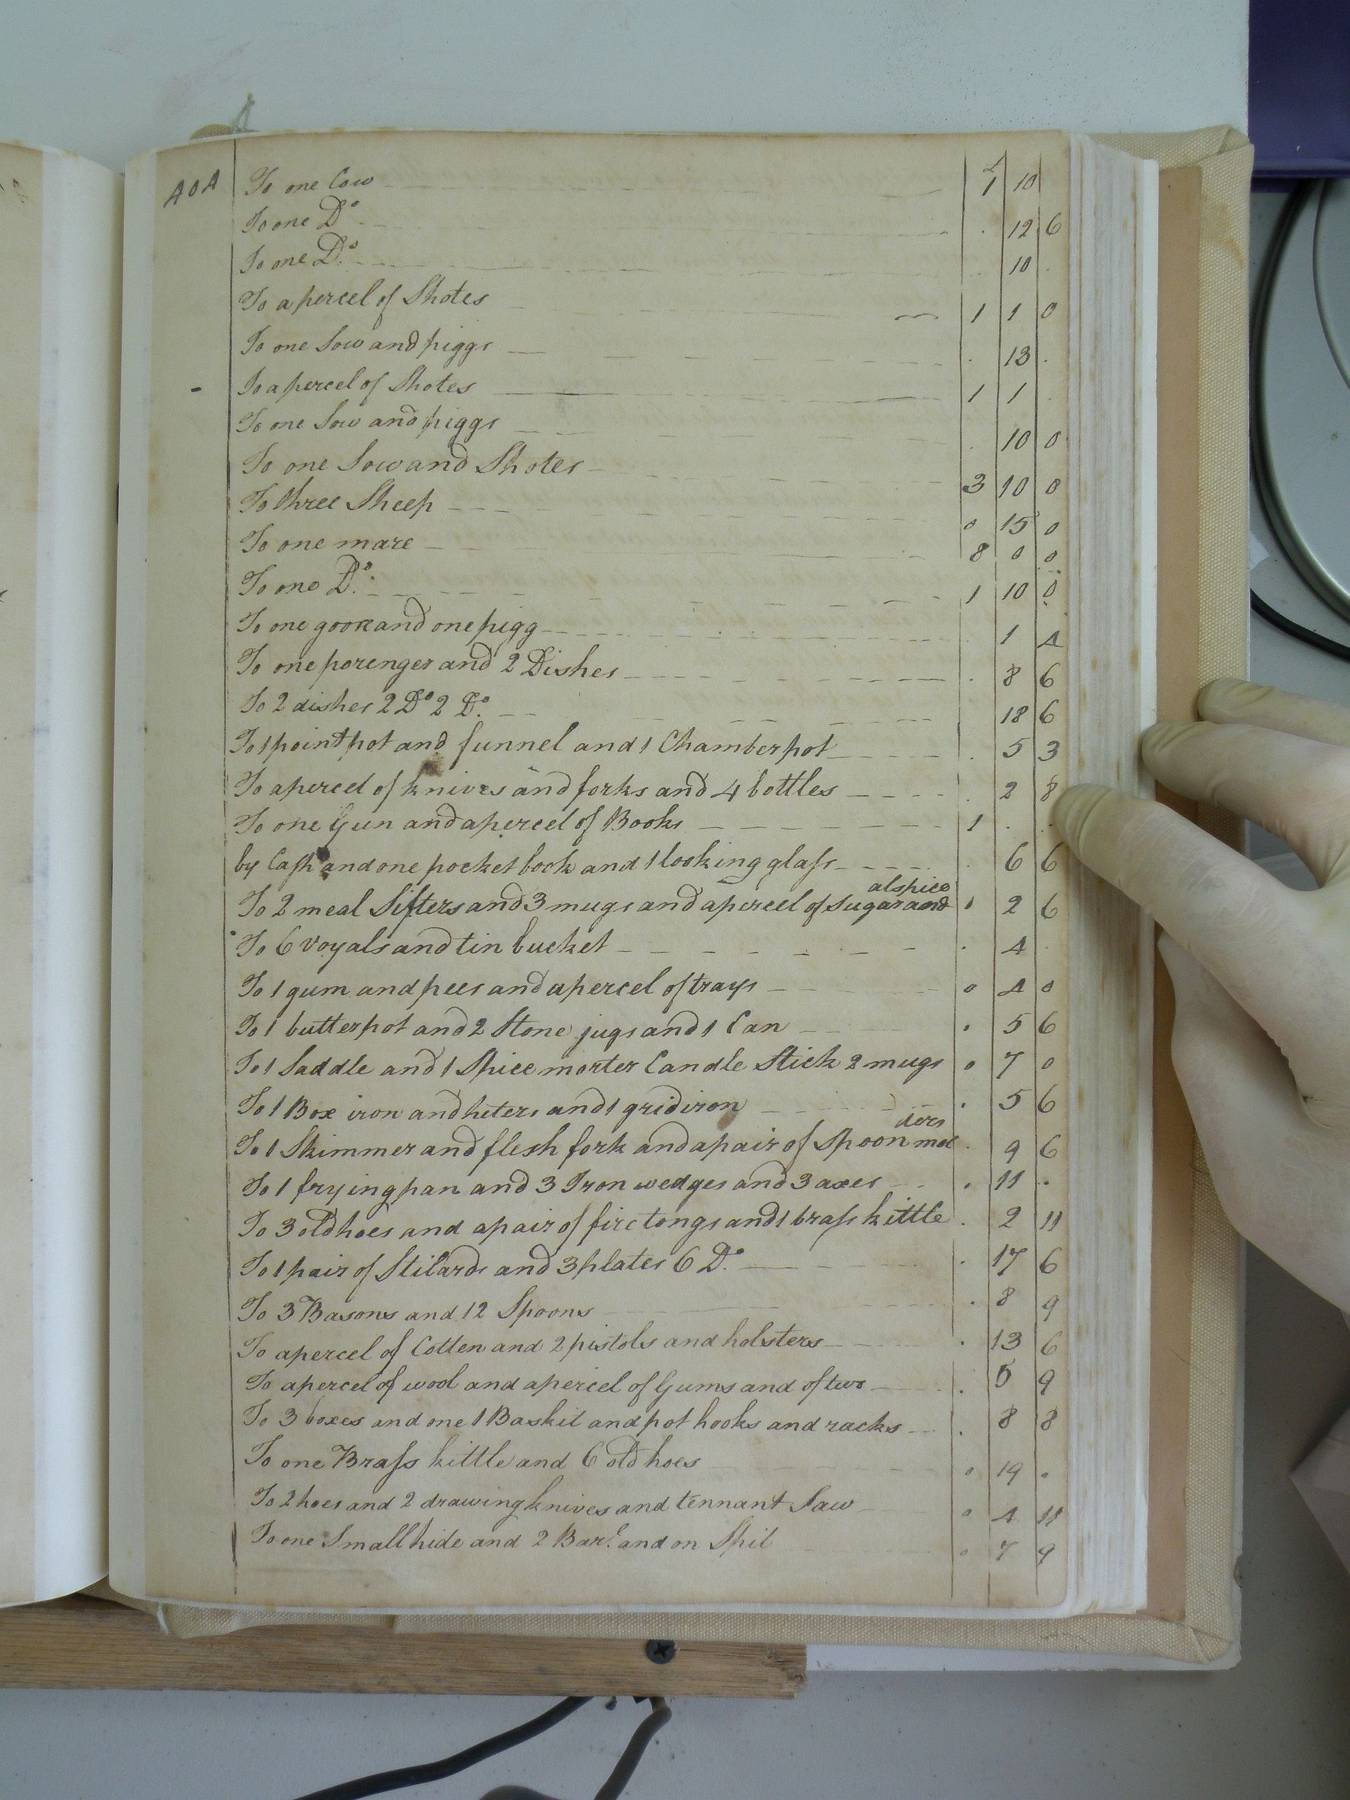 404 To one Cow £1 10
To one Do . 12 6
To one Do . 10 .
To a percel of Shotes 1 1 0
To one Sow and piggs . 13 .
To a percel of Shotes 1 1 .
To one Sow and piggs . 10 0
To one Sow and Shotes 3 10 0
To three Sheep 0 15 0
To one mare 8 0 0
To one Do 1 10 0
To one and one pigg 1 4
To one porenger and 2 Dishes . 8 6
To 2 dishes 2 Do 2 Do 18 6
To 1 point pot and funnel and 1 Chamber pot . 5 3
To a percel of knives and forks and 4 bottles . 2 8
To one Gun and a percel of Books 1 . .
by Cash and one pocket book and 1 looking glass . 6 6
alspice
To 2 meal Sifters and 3 mugs and a percel of Sugar and 0 2 6
To 6 voyals and tin bucket . 4 .
To 1 gum and pees and a percel of trays 0 4 0
To 1 butter pot and 2 Stone jugs and 1 Can . 5 6
To 1 Saddle and 1 Spice morter Candle Stick 2 mugs 0 7 0
To 1 Box iron and heters and 1 gridiron . 5 6
ders
To 1 Skimmer and flesh fork and a pair of Spoon mol . 9 6
To 1 frying pan and 3 Iron wedges and 3 axes . 11 .
To 3 old hoes and a pair of fire tongs and 1 brass kittle . 2 11
To 1 pair of Stilards and 3 plates 6 Do . 17 6
To 3 Basons and 12 Spoons . 8 9
To a percel of Cotten and 2 pistols and holsters . 13 6
To a percel of wool and a percel of Gums and of tws . 5 9
To 3 boxes and one 1 Baskit and pot hooks and racks . 8 8
To one Brass kittle and 6 old hoes 0 19 0
To 2 hoes and 2 drawing knives and tennant Saw 0 4 11
To one Small hide and 2 Barl and on Spil 0 7 9